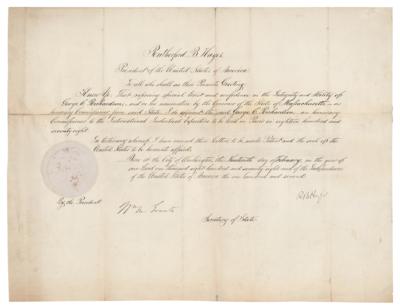 Rutherford B. Hayes
President of the United States of America
To all who shall see these Presents Greeting:
Know Ye, That reposing special trust and confidence in the Integrity and Ability of
George C. Richardson, and on his nomination by the Governor of the State of Massachusetts as
honorary Commissioner from said State, I do appoint the said George C. Richardson, an honorary
Commissioner to the International Industrial Exposition to be held in Paris in eighteen hundred and
seventy eight.
In testimony whereof I have caused these Letters to be made Patent and the seal of the
United States to be hereunto affixed.
Done at the City of Washington, the day of February, in the year of
our Lord one thousand eight hundred and seventy eight and of the Independence
of the United States of America the one hundred and second.
RB Hayes
By the President
Wm M. Evarts
Secretary of State